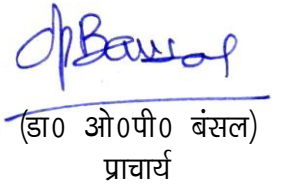 OPBansal
(डा० ओ०पी० बंसल)
प्राचार्य